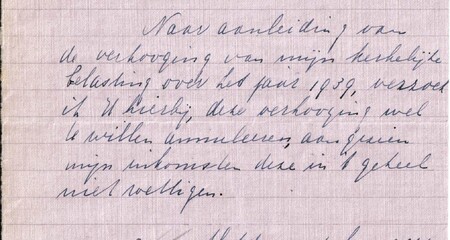 Naar aanleiding van
de verhooging van mijn kerkelijke
belasting over het jaar 1939, verzoek
ik U hierbij, deze verhooging wel
te willen annuleeren, aangezien
mijn inkomsten deze in 't geheel
niet wettigen.